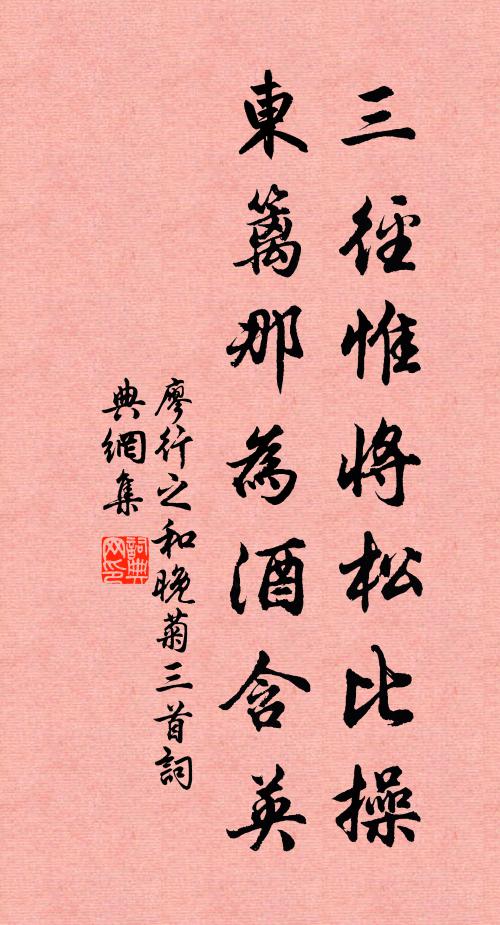 三徑惟將松比操
東籬那為酒含英
廖行之和晚菊三首詞
典網集
詞典
网印